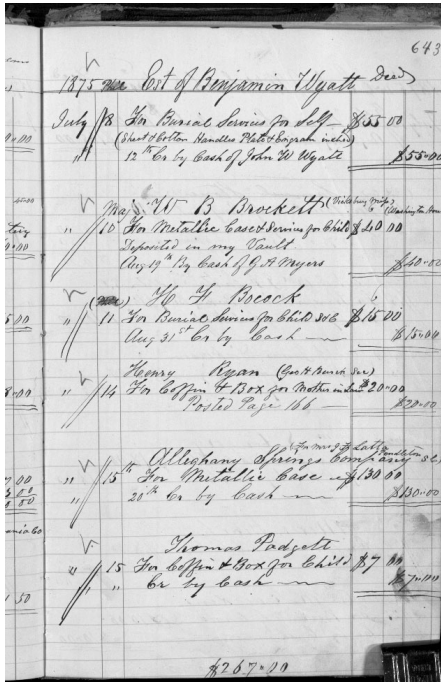 643
1875 Est of Benjamin Wyatt Decd
July 8 For Burial Services for Self $55.00
(Shect & Cotton Handles Plate & Engravin inched)
" 12th Cr by Cash of John W Wyatt $55.00
Maj. W B Brockett (Vicksburg Miss) (Washington House
" 10 For Metallic Case & Services for Child $40 00
Deposited in my Vault
Aug 19th By Cash of G A Myers $40.00
H F Bocock
" 11 For Burial Services for Child $15.00
Aug 31st Cr by Cash $15.00
Henry Ryan (Geo H Burch Sec)
" 14 For Coffin & Box for Mother in Law $20.00
Posted Page 166 $20.00
(For Mrs Latta Pendleton
Alleghany Springs Company
" 15th For Metallic Case $130 00
20th Cr by Cash $130.00
Thomas Padgett
" 15 For Coffin & Box for Child $7 00
" " Cr by Cash $7.00
$267.00